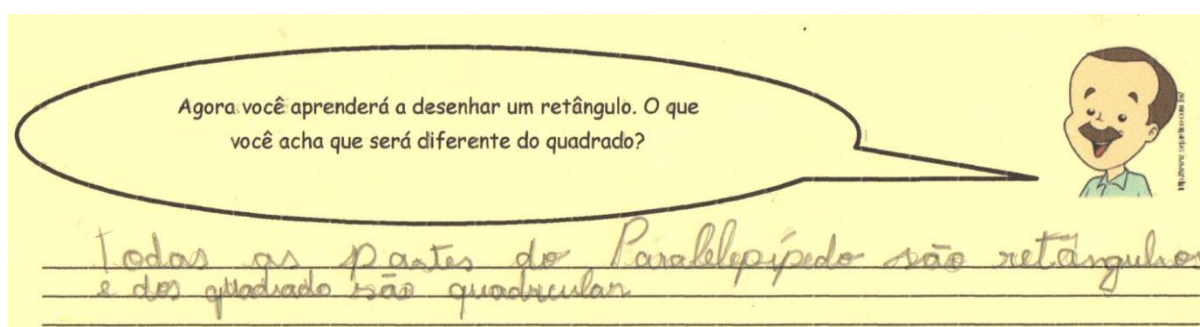 Agora você aprenderá a desenhar um retângulo. O que
você acha que será diferente do quadrado?
Todas as partes do Paralelepípedo são retângulos
e dos quadrado são quadricular